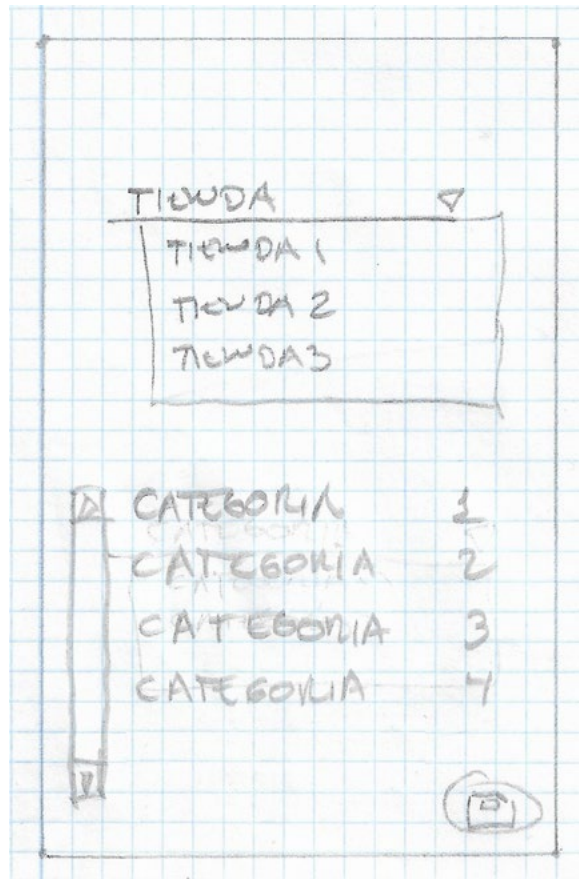 TIENDA
TIENDA 1
TIENDA 2
TIENDA 3
CATEGORIA 1
CATEGORIA 2
CATEGORIA 3
CATEGORIA 4